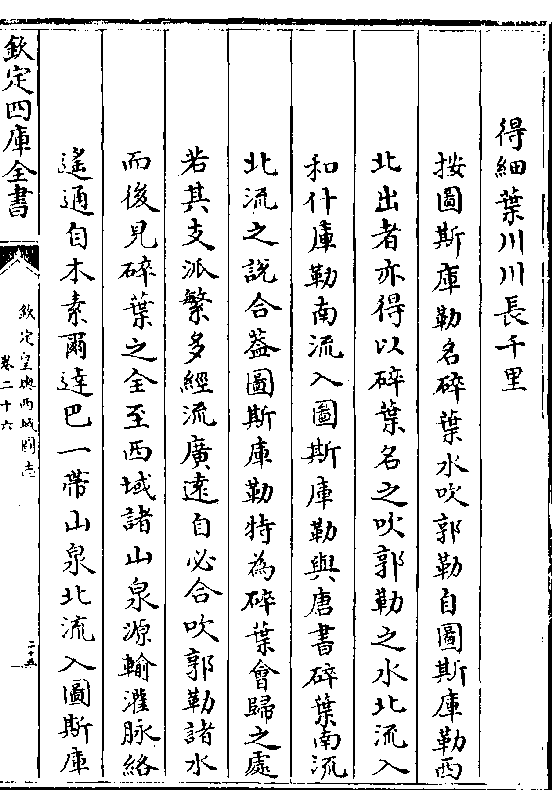 得細葉川川長千里
按圖斯庫勒名碎葉水吹郭勒自圖斯庫勒西
北出者亦得以碎葉名之吹郭勒之水北流入
和什庫勒南流入圖斯庫勒與唐書碎葉南流
北流之說合葢圖斯庫勒特為碎葉會歸之處
若其支派繁多經流廣遠自必合吹郭勒諸水
而後見碎葉之全至西域諸山泉源輸灌脉絡
遙通自木素爾達巴一帶山泉北流入圖斯庫
欽定四庫全書
欽定皇輿西域圖志
卷二十六
二十五